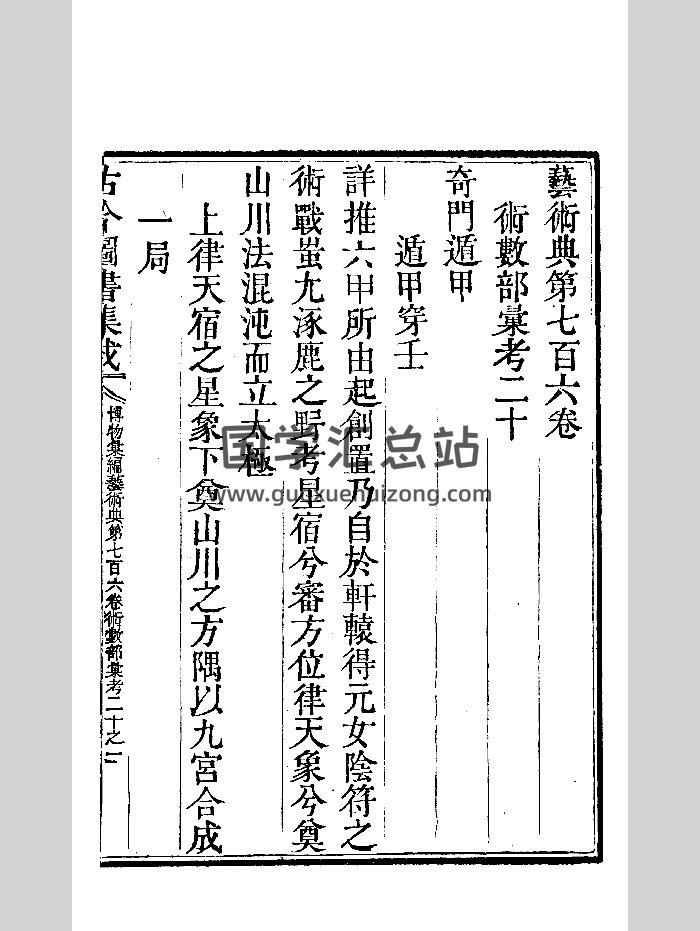 藝術典第七百六卷
術數部彙考二十
奇門遁甲
遁甲穿壬
詳推六甲所由起創置乃自於軒轅得元女陰符之
術戰蚩尤涿鹿之野考星宿兮審方位律天象兮奠
山川法混沌而立太極
上律天宿之星象下奠山川之方隅以九宮合成
一局
古今圖書集成
博物彙編藝術典第七百六卷術數部彙考二十之一
国学汇总站
www.guoxuehuizong.com